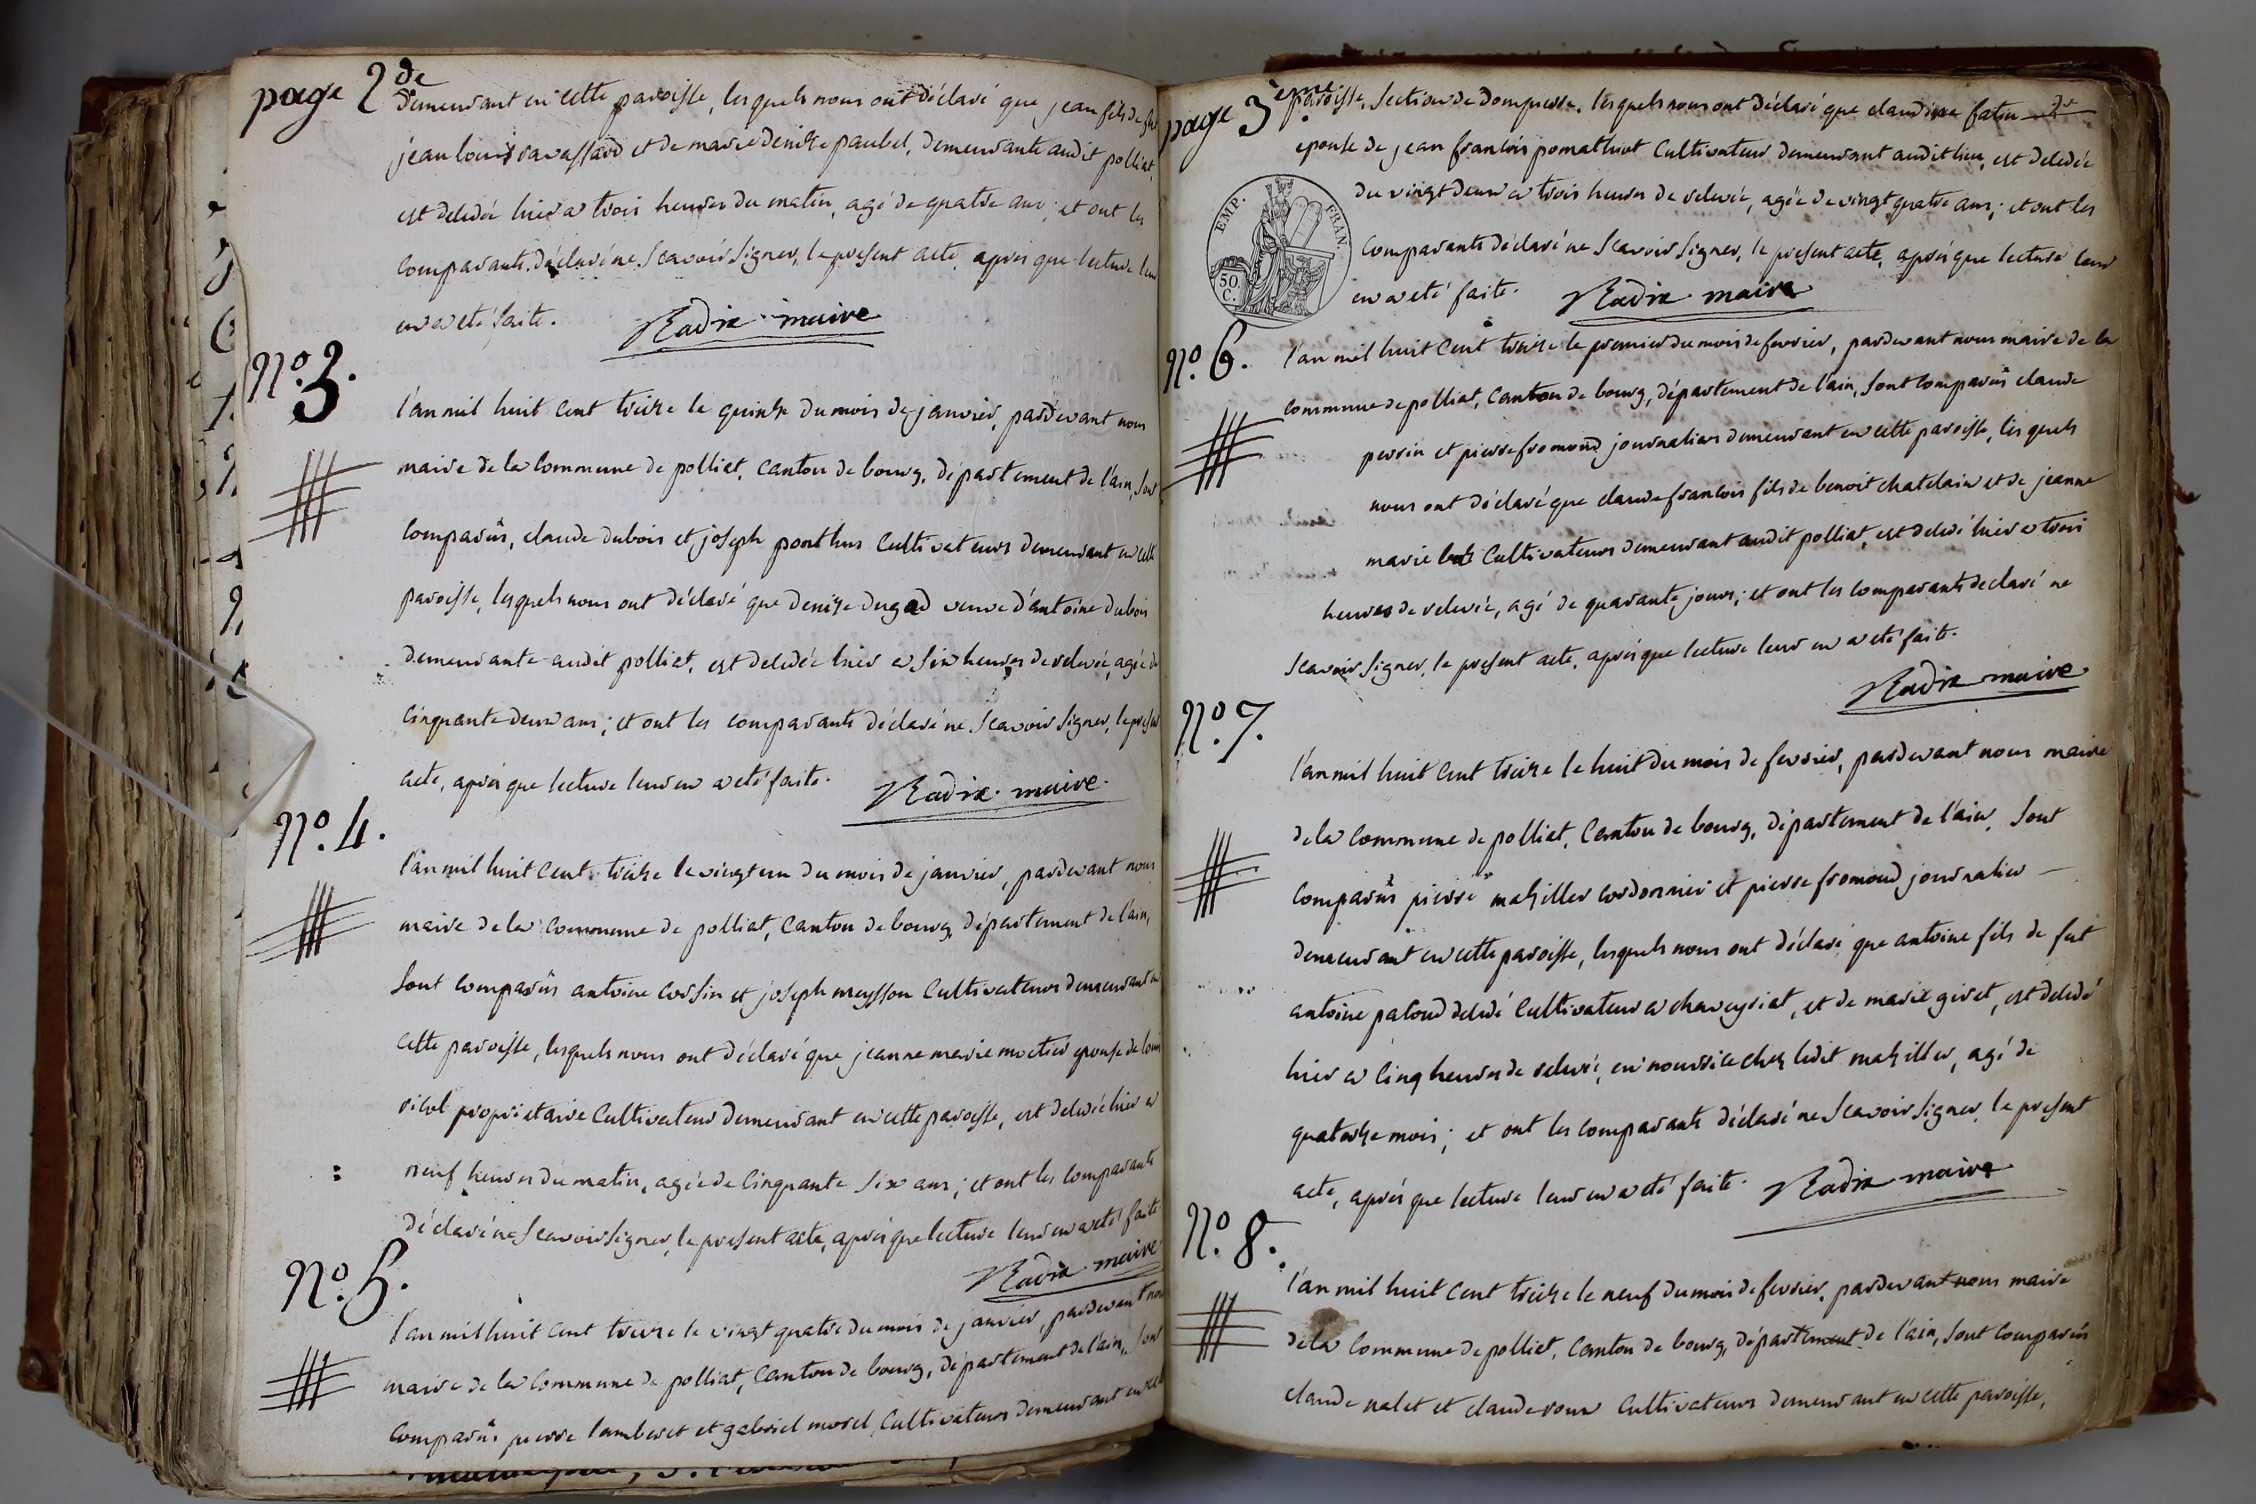 page 2de
demeurant en cette paroisse, lesquels nous ont déclaré que jean fils de
jean louis ravassard et de marie denise paubel, demeurants audit polliat,
est décédé hier a trois heures du matin, agé de quatre ans; et ont les
comparants déclaré ne scavoir signer, le present acte, apres que lecture leur
en a eté faite. Radix maire
N.º 3.
l'an mil huit cent treize le quinze du mois de janvier, pardevant nous
maire de la commune de polliat, canton de bourg, département de l'ain, sont
comparûs, claude dubois et joseph ponthus cultivateurs demeurant en cette
paroisse, lesquels nous ont déclaré que denise dugad veuve d'antoine dubois
demeurante audit polliat, est décédée hier a six heures de relevée, agée de
cinquante deux ans; et ont les comparants déclaré ne scavoir signer, le present
acte, aprés que lecture leur en a eté faite. Radix maire.
N.º 4.
l'an mil huit cent treize le vingt un du mois de janvier, pardevant nous
maire de la commune de polliat, canton de bourg, département de l'ain,
sont comparûs antoine corsin et joseph meysson cultivateurs demeurant en
cette paroisse, lesquels nous ont déclaré que jeanne marie moctier epouse de louis
ricol propriétaire cultivateur demeurant en cette paroisse, est décédée hier a
neuf heures du matin, agée de cinquante six ans; et ont les comparants
déclaré ne scavoir signer, le present acte, aprés que lecture leur en a eté faite
Radix maire
N.º 5.
l'an mil huit cent treize le vingt quatre du mois de janvier, pardevant nous
maire de la commune de polliat, canton de bourg, département de l'ain, sont
comparûs pierre lamberet et gabriel morel, cultivateurs demeurant en cette
page 3ème
paroisse, section de dompierre, lesquels nous ont déclaré que claudine fatin
epouse de jean francois pomathiot cultivateur demeurant audit lieu, est décédée
du vingt deux a trois heures de relevée, agée de vingt quatre ans; et ont les
EMP. FRAN.
comparants déclaré ne scavoir signer, le present acte, aprés que lecture leur
50 C.
en a eté faite. Radix maire
N.º 6.
l'an mil huit cent treize le premier du mois de fevrier, pardevant nous maire de la
commune de polliat, canton de bourg, département de l'ain, sont comparûs claude
perrin et pierre fromond journaliers demeurant en cette paroisse, lesquels
nous ont déclaré que claude francois fils de benoit chatelain et de jeanne
marie cultivateurs demeurant audit polliat, est décédé hier a trois
heures de relevée, agé de quarante jours; et ont les comparants declaré ne
scavoir signer, le present acte, aprés que lecture leur en a eté faite.
Radix maire.
N.º 7.
l'an mil huit cent treize le huit du mois de fevrier, pardevant nous maire
de la commune de polliat, canton de bourg, département de l'ain, sont
comparûs pierre maziller cordonnier et pierre fromond journalier
demeurant en cette paroisse, lesquels nous ont déclaré que antoine fils de fut
antoine pacoud décédé cultivateur a chaveyriat, et de marie giret, est décédé
hier a cinq heures de relevée, en nourrice chez ledit maziller, agé de
quatorze mois; et ont les comparants déclaré ne scavoir signer, le present
acte, aprés que lecture leur en a eté faite. Radix maire
N.º 8.
l'an mil huit cent treize le neuf du mois de fevrier, pardevant nous maire
de la commune de polliat, canton de bourg, département de l'ain, sont comparûs
claude nalet et claude roux cultivateurs demeurant en cette paroisse,